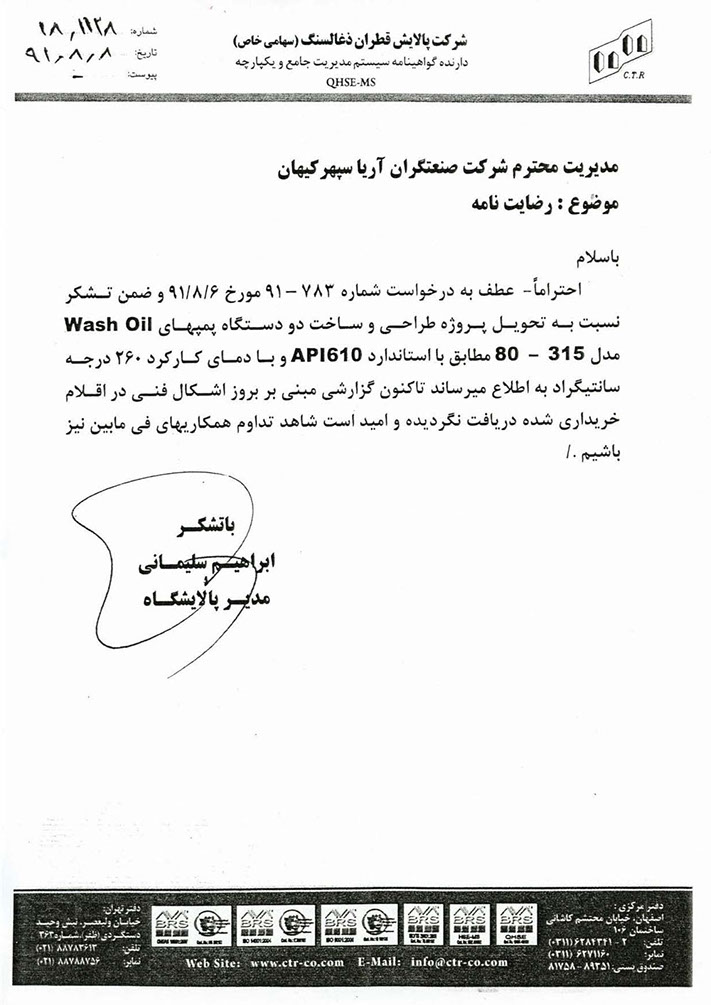 شرکت پالایش قطران ذغالسنگ (سهامی خاص)
دارنده گواهینامه سیستم مدیریت جامع و یکپارچه
QHSE-MS
C.T.R
شماره: ۱۸٫۱۱۲۸
تاریخ: ۹۱٫۸٫۸
پیوست: –
مدیریت محترم شرکت صنعتگران آریا سپهر کیهان
موضوع : رضایت نامه
باسلام
احتراماً- عطف به درخواست شماره ۷۸۳ – ۹۱ مورخ ۹۱/۸/۶ و ضمن تشکر
نسبت به تحویل پروژه طراحی و ساخت دو دستگاه پمپهای Wash Oil
مدل 315 – 80 مطابق با استاندارد API610 و با دمای کارکرد ۲۶۰ درجه
سانتیگراد به اطلاع میرساند تاکنون گزارشی مبنی بر بروز اشکال فنی در اقلام
خریداری شده دریافت نگردیده و امید است شاهد تداوم همکاریهای فی مابین نیز
باشیم ./
باتشکر
ابراهیم سلیمانی
مدیر پالایشگاه
دفتر مرکزی :
اصفهان، خیابان محتشم کاشانی
ساختمان ۱۰۶
تلفن: ۲ - ۶۲۸۴۳۴۱ (۰۳۱۱)
نمابر: ۶۲۷۱۱۶۰ (۰۳۱۱)
صندوق پستی: ۸۹۳۵۱ - ۸۱۷۵۸
BRS BRS BRS BRS BRS BRS
دفتر تهران:
خیابان ولیعصر، نبش وحید
دستگردی (ظفر)، شماره ۳۶۳
تلفن: ۸۸۷۸۳۶۱۳ (۰۲۱)
نمابر: ۸۸۷۸۸۷۵۶ (۰۲۱)
Web Site: www.ctr-co.com E-Mail: info@ctr-co.com